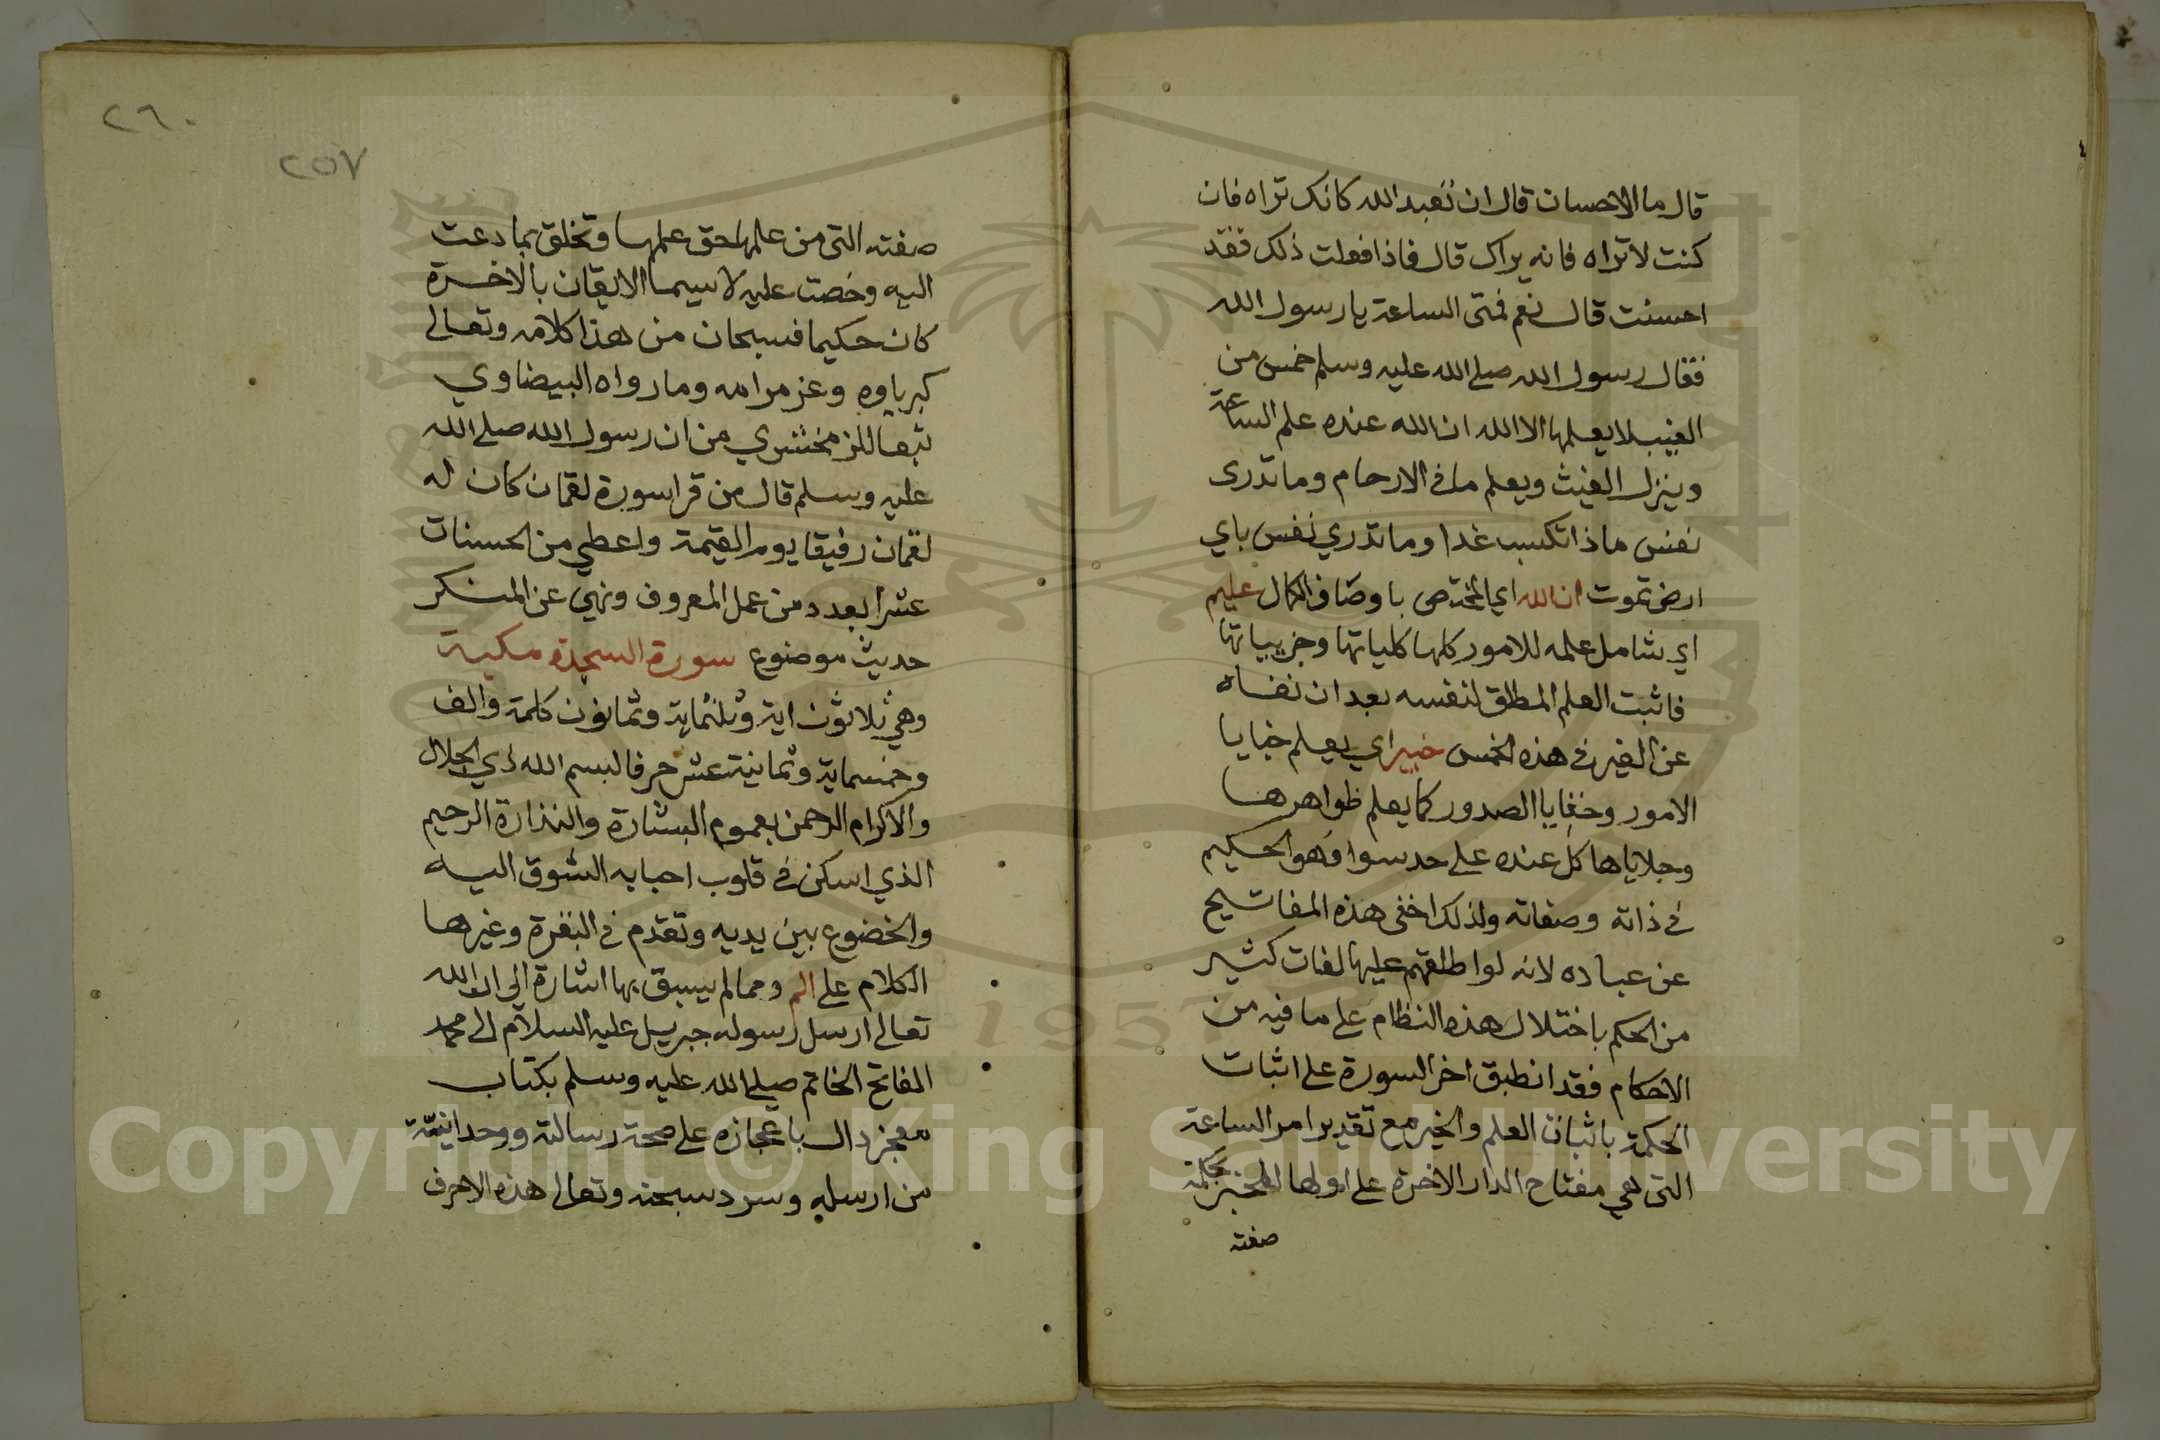 قال ما الاحسان قال ان تعبد الله كانك تراه فان
كنت لا تراه فانه يراك قال فاذا فعلت ذلك فقد
احسنت قال نعم فمتى الساعة يا رسول الله
فقال رسول الله صلى الله عليه وسلم خمس من
الغيب لا يعلمها الا الله ان الله عنده علم الساعة
وينزل الغيث ويعلم ما في الارحام وما تدرى
نفس ماذا تكسب غدا وما تدري نفس باي
ارض تموت ان الله اي المختص باوصاف الكمال عليم
اي شامل علمه للامور كلها كلياتها وجزيياتها
فاثبت العلم المطلق لنفسه بعد ان نفاه
عن الغير في هذه الخمس خبير اي يعلم خبايا
الامور وخفايا الصدور كما يعلم ظواهرها
وجلاياها كل عنده على حد سوا فهو الحكيم
في ذاته وصفاته ولذلك اخفى هذه المفاتيح
عن عباده لانه لو اطلعهم عليها لفات كثير
من الحكم باختلال هذه النظام على ما فيه من
الاحكام فقد انطبق اخر السورة على اثبات
الحكمة باثبات العلم والخبر مع تقدير امر الساعة
التى هي مفتاح الدار الاخرة على اولها المخبر بحكمة
صفته
٢٦٠
٢٥٧
صفته التى من علمها حق علمها وتخلق بما دعت
اليه وحضت عليه لا سيما الايقان بالاخرة
كان حكيما فسبحان من هذا كلامه وتعالى
كبرياوه وعز مرامه وما رواه البيضاوي
تبعا للزمخشري من ان رسول الله صلى الله
عليه وسلم قال من قرا سورة لقمان كان له
لقمان رفيقا يوم القيمة واعطي من الحسنات
عشرا بعدد من عمل المعروف ونهي عن المنكر
حديث موضوع سورة السجدة مكية
وهي ثلاثون اية وثلثماية وثمانون كلمة والف
وخمسماية وثمانية عشر حرفا بسم الله ذي الجلال
والاكرام الرحمن بعموم البشارة والنذارة الرحيم
الذي اسكن في قلوب احبابه الشوق اليه
والخضوع بين يديه وتقدم في البقرة وغيرها
الكلام على الم ومما لم يسبق بها اشارة الي ان الله
تعالى ارسل رسوله جبريل عليه السلام الى محمد
الفاتح الخاتم صلى الله عليه وسلم بكتاب
معجز دال باعجازه على صحة رسالته ووحدانية
من ارسله وسرد سبحنه وتعالى هذه الاحرف
1957
Copyright © King Saud University